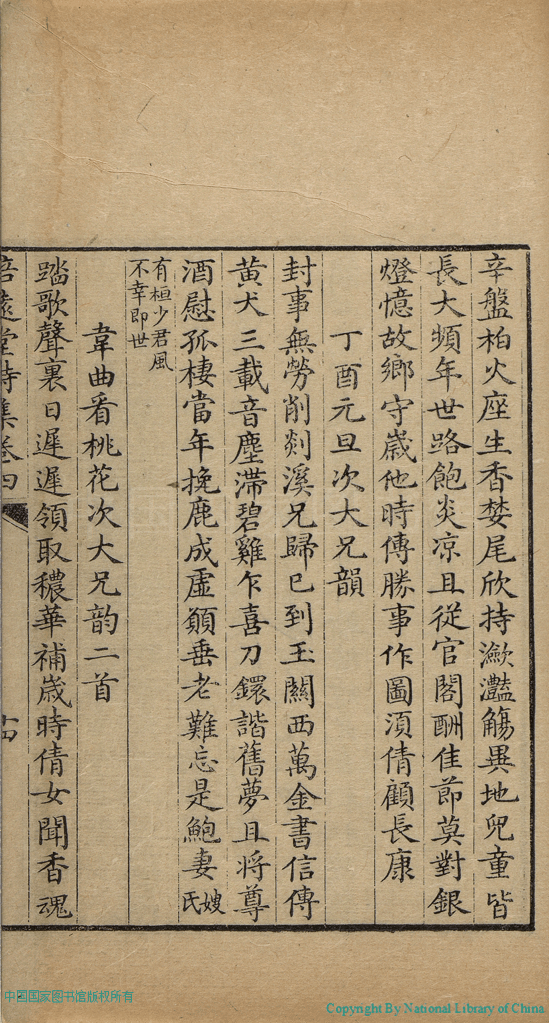 辛盤柏火座生香婪尾欣持瀲灔觴異地兒童皆
長大頻年世路飽炎凉且從官閣酬佳節莫對銀
燈憶故鄉守歲他時傳勝事作圖須倩顧長康
丁酉元旦次大兄韻
封事無勞削剡溪兄歸已到玉關西萬金書信傳
黄犬三載音塵滯碧雞乍喜刀鐶諧舊夢且將尊
酒慰孤棲當年挽鹿成虛願垂老難忘是鮑妻嫂氏
有桓少君風
不幸即世
韋曲看桃花次大兄韵二首
踏歌聲裏日遲遲領取穠華補歲時倩女聞香魂
培遠堂詩集卷四
十四
中国国家图书馆版权所有
Copyright By National Library of China